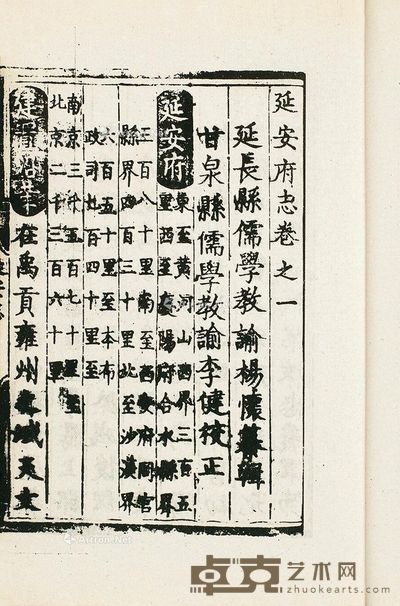 延安府志卷之一
延長縣儒學教諭楊懷纂輯
甘泉縣儒學教諭李健校正
延安府
東至黃河山西界三百五
十里西至慶陽府合水縣界
三百八十里南至西安府同官
縣界四百三十里北至沙漠界
六百五十里至本布
政司七百四十里至
南京三千五百七十里至
北京二千三百六十里
建置沿革
在禹貢雍州之域天文
Artron.Net
卓克艺术网
www.zhuokearts.com